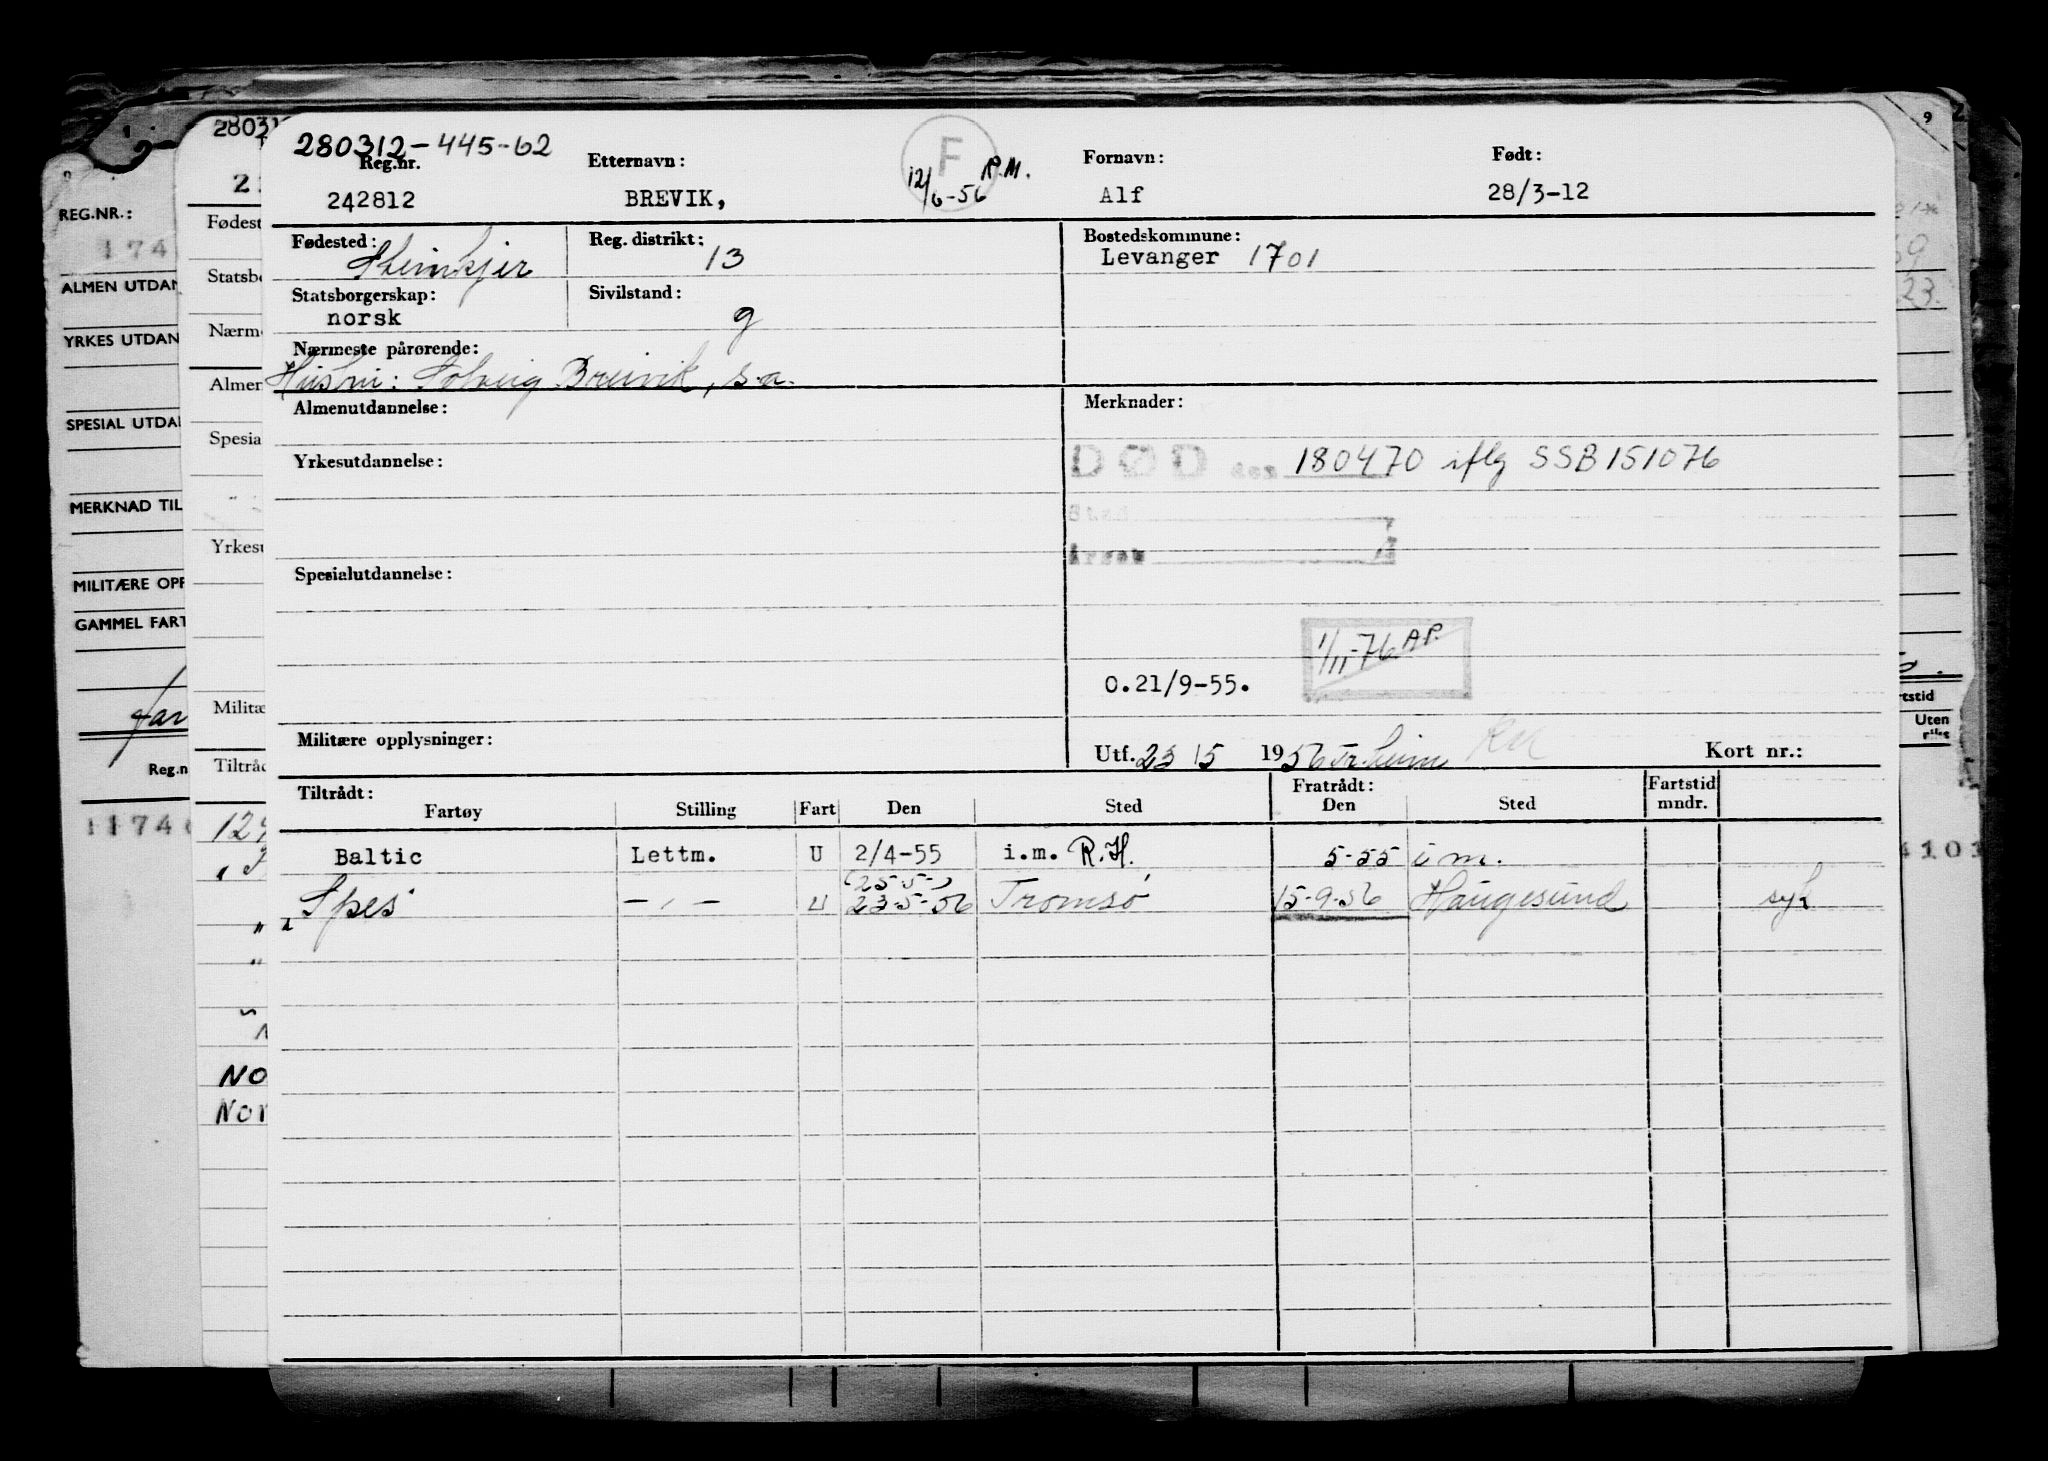 280312-445-62
Reg.nr. Etternavn: F Fornavn: Født:
242812 BREVIK, 12/6-56 R.M. Alf 28/3-12
Fødested: Steinkjer Reg. distrikt: 13 Bostedskommune:
Levanger 1701
Statsborgerskap: Sivilstand:
norsk g
Nærmeste pårørende:
Hustru: Solveig Breivik, s.a.
Almenutdannelse: Merknader:
Yrkesutdannelse: DØD den 180470 iflg SSB151076
Sted
Årsak
Spesialutdannelse:
1/11-76 AP.
0.21/9-55.
Militære opplysninger: Utf. 23/5 1956 Tr.heim Kort nr.:
Tiltrådt: Fratrådt: Fartstid
Fartøy Stilling Fart Den Sted Den Sted mndr.
Baltic Lettm. U 2/4-55 i.m. R.H. 5-55 i m.
(25-5-)
Spes -"- U 23-5-56 Tromsø 15-9-56 Haugesund syk
REG.NR.:
1174
ALMEN UTDAN
YRKES UTDAN
SPESIAL UTDA
MERKNAD TIL
MILITÆRE OPP
GAMMEL FART
Reg.n
11740
280312
Fødest
Statsbo
Nærme
Almen
Spesia
Yrkesu
Militæ
Tiltråd
124
NO
Nor
9
23.
rtstid
Uten
riks
4101